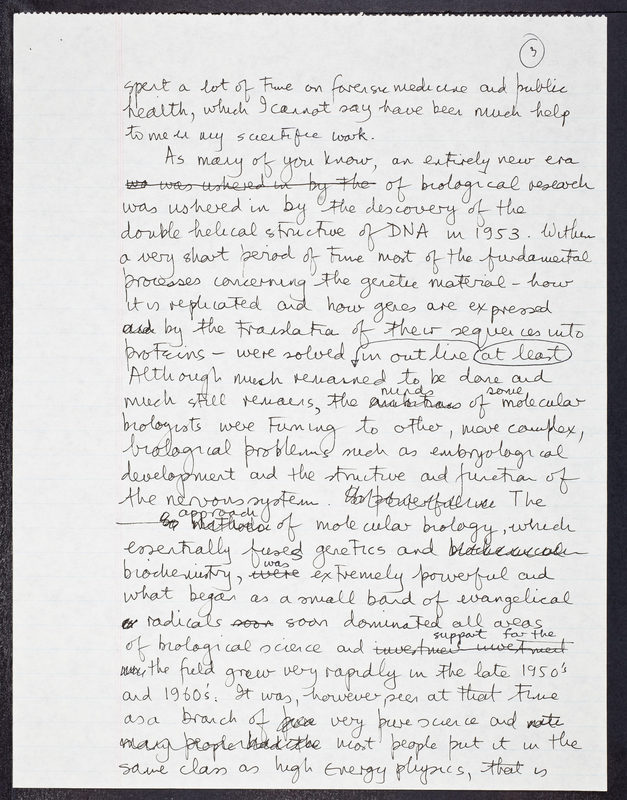 3
spent a lot of time on forensic medicine and public
health, which I cannot say have been much help
to me in my scientific work.
As many of you know, an entirely new era
was ushered in by the of biological research
was ushered in by the discovery of the
double helical structure of DNA in 1953. Within
a very short period of time most of the fundamental
processes concerning the genetic material - how
it is replicated and how genes are expressed
and by the translation of their sequences into
proteins - were solved, in outline at least
Although much remained to be done and
minds some
much still remains, the ambitions of molecular
biologists were turning to other, more complex,
biological problems such as embryological
development and the structure and function of
the nervous system. The
approach
of molecular biology, which
essentially fused genetics and
was
biochemistry, were extremely powerful and
what began as a small band of evangelical
radicals soon soon dominated all areas
support for the
of biological science and investment investment
the field grew very rapidly in the late 1950's
and 1960's. It was, however, seen at that time
as a branch of very pure science and
many people had the most people put it in the
same class as high energy physics, that is